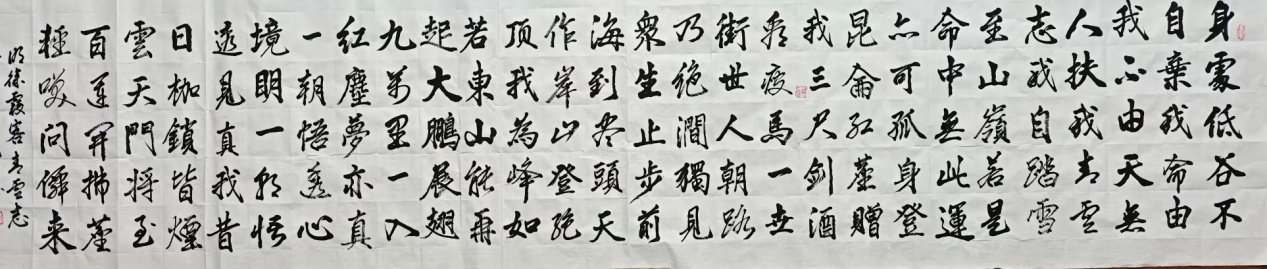 身處低谷不
自棄我命由
我不由天無
人扶我青雲
志我自踏雪
至山嶺若是
命中無此運
亦可孤身登
昆侖紅塵贈
我三尺劍酒
馬一世
街世人朝路
乃絕澗獨見
眾生止步前
海到盡頭天
作岸山登絕
頂我為峰如
若東山能再
起大鵬展翅
九萬里一入
紅塵夢亦真
一朝悟透心
境明一朝悟
透見真我昔
日枷鎖皆煙
雲天門將至
百蓮開拂塵
輕嘆問僊来
明徐霞客青雲志